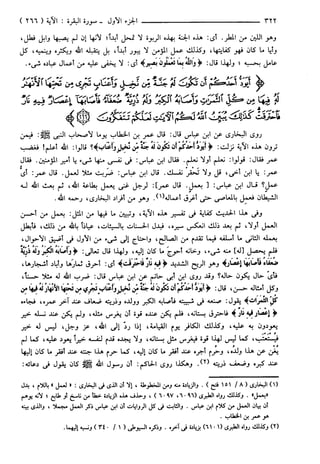 ٣٢٢ الجزء الأول ـ سورة البقرة : الآية ( ٢٦٦ )
وهو اللين من المطر. أي: هذه الجنة بهذه الربوة لا تمحل أبداً؛ لأنها إن لم يصبها وابل فطل،
وأيا ما كان فهو كفايتها، وكذلك عمل المؤمن لا يبور أبداً، بل يتقبله الله ويكثره وينميه، كل
عامل بحسبه؛ ولهذا قال: ﴿وَاللَّهُ بِمَا تَعْمَلُونَ بَصِيرٌ﴾ أي: لا يخفى عليه من أعمال عباده شيء.
﴿أَيَوَدُّ أَحَدُكُمْ أَن تَكُونَ لَهُ جَنَّةٌ مِّن نَّخِيلٍ وَأَعْنَابٍ تَجْرِي مِن تَحْتِهَا الْأَنْهَارُ
لَهُ فِيهَا مِن كُلِّ الثَّمَرَاتِ وَأَصَابَهُ الْكِبَرُ وَلَهُ ذُرِّيَّةٌ ضُعَفَاءُ فَأَصَابَهَا إِعْصَارٌ فِيهِ نَارٌ
فَاحْتَرَقَتْ كَذَلِكَ يُبَيِّنُ اللَّهُ لَكُمُ الْآيَاتِ لَعَلَّكُمْ تَتَفَكَّرُونَ﴾
روى البخاري عن ابن عباس قال: قال عمر بن الخطاب يوما لأصحاب النبي ﷺ: فيمن
ترون هذه الآية نزلت: ﴿أَيَوَدُّ أَحَدُكُمْ أَن تَكُونَ لَهُ جَنَّةٌ مِّن نَّخِيلٍ وَأَعْنَابٍ﴾؟ قالوا: الله أعلم! فغضب
عمر فقال: قولوا: نعلم أو لا نعلم. فقال ابن عباس: في نفسي منها شيء يا أمير المؤمنين. فقال
عمر: يا ابن أخي، قل ولا تحقر نفسك. قال ابن عباس: ضربت مثلا لعمل. قال عمر: أي
عمل؟ قال ابن عباس: [ لعمل. قال عمر]: لرجل غني يعمل بطاعة الله، ثم بعث الله له
الشيطان فعمل بالمعاصي حتى أغرق أعماله(١). وهو من أفراد البخاري، رحمه الله.
وفي هذا الحديث كفاية في تفسير هذه الآية، وتبيين ما فيها من المثل: بعمل من أحسن
العمل أولا، ثم بعد ذلك انعكس سيره، فبدل الحسنات بالسيئات، عياذاً بالله من ذلك، فأبطل
بعمله الثاني ما أسلفه فيما تقدم من الصالح، واحتاج إلى شيء من الأول في أضيق الأحوال،
فلم يحصل [له] منه شيء، وخانه أحوج ما كان إليه، ولهذا قال تعالى: ﴿وَأَصَابَهُ الْكِبَرُ وَلَهُ ذُرِّيَّةٌ
ضُعَفَاءُ فَأَصَابَهَا إِعْصَارٌ﴾ وهو الريح الشديد ﴿فِيهِ نَارٌ فَاحْتَرَقَتْ﴾ أي: أحرق ثمارها وأباد أشجارها،
فأي حال يكون حاله؟ وقد روى ابن أبي حاتم عن ابن عباس قال: ضرب الله له مثلا حسناً،
وكل أمثاله حسن، قال: ﴿أَيَوَدُّ أَحَدُكُمْ أَن تَكُونَ لَهُ جَنَّةٌ مِّن نَّخِيلٍ وَأَعْنَابٍ تَجْرِي مِن تَحْتِهَا الْأَنْهَارُ لَهُ فِيهَا مِن
كُلِّ الثَّمَرَاتِ﴾ يقول: صنعه في شيبته فأصابه الكبر وولده وذريته ضعاف عند آخر عمره، فجاءه
﴿إِعْصَارٌ فِيهِ نَارٌ﴾ فاحترق بستانه، فلم يكن عنده قوة أن يغرس مثله، ولم يكن عند نسله خير
يعودون به عليه، وكذلك الكافر يوم القيامة، إذا رد إلى الله، عز وجل، ليس له خير
فيستعتب، كما ليس لهذا قوة فيغرس مثل بستانه، ولا يجده قدم لنفسه خيراً يعود عليه، كما لم
يغن عن هذا ولده، وحرم أجره عند أفقر ما كان إليه، كما حرم هذا جنته عند أفقر ما كان إليها
عند كبره وضعف ذريته (٢). وهكذا روى الحاكم: أن رسول الله ﷺ كان يقول في دعائه: